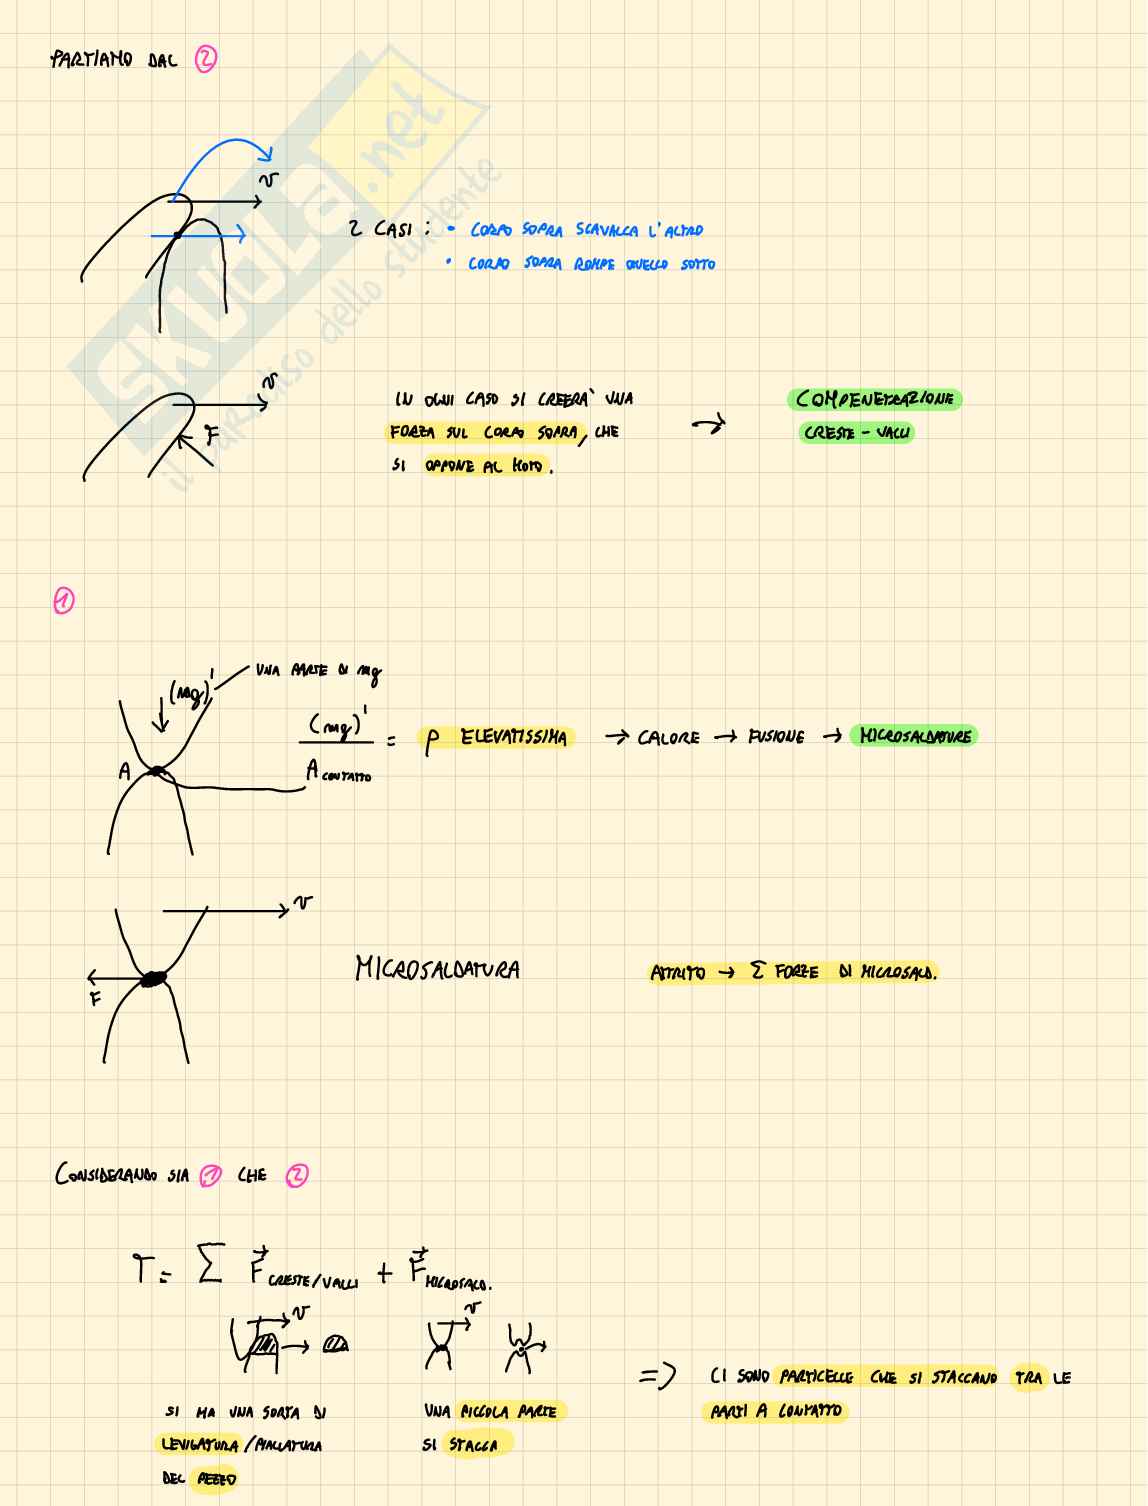 PARTIAMO DAL 2
SKUOLA.net
il paradiso dello studente
v
2 CASI : • CORPO SOPRA SCAVALCA L'ALTRO
• CORPO SOPRA ROMPE QUELLO SOTTO
v
F
IN OGNI CASO SI CREERA' UNA
FORZA SUL CORPO SOPRA, CHE
SI OPPONE AL MOTO.
→ COMPENETRAZIONE
CRESTE - VALLI
1
(mg)' UNA PARTE DI mg
A
(mg)' / A CONTATTO = P ELEVATISSIMA → CALORE → FUSIONE → MICROSALDATURE
v
F
MICROSALDATURA
ATTRITO → Σ FORZE DI MICROSALD.
CONSIDERANDO SIA 1 CHE 2
T = Σ F CRESTE/VALLI + F MICROSALD.
v
v
SI HA UNA SORTA DI
LEVIGATURA / PIALLATURA
DEL PEZZO
UNA PICCOLA PARTE
SI STACCA
=> CI SONO PARTICELLE CHE SI STACCANO TRA LE
PARTI A CONTATTO